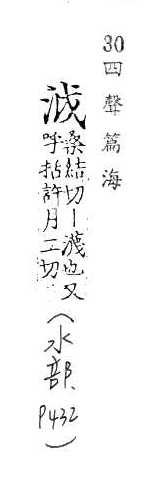 30四聲篇海
泧
桑結切｜瀎也又
呼括許月二切
（水部 P432）